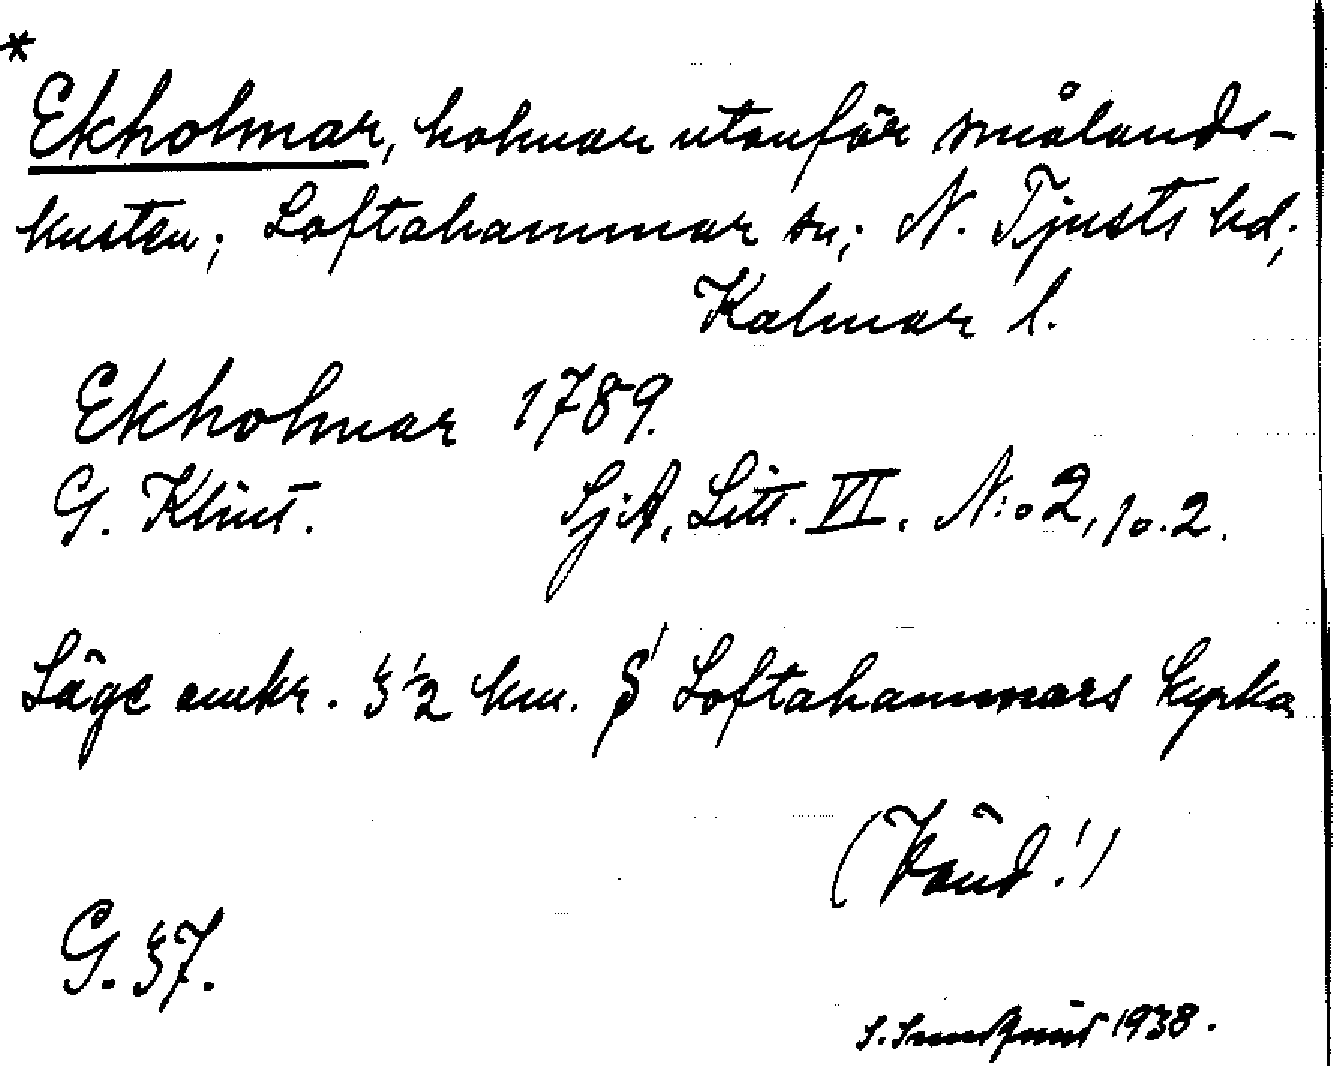 *
Ekholmar, holmar utanför smålands-
kusten; Loftahammar sn; N. Tjusts hd;
Kalmar l.
Ekholmar 1789.
G. Klint. SjA, Litt. VI. N:o 2, 1o. 2.
Läge omkr. 3 1/2 km. S Loftahammars kyrka
(Vänd!)
G. 37.
S. Sundquist 1938.